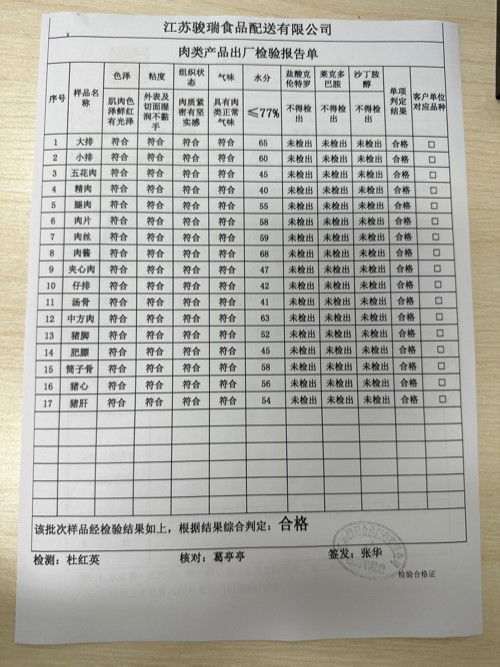 江苏骏瑞食品配送有限公司
肉类产品出厂检验报告单
序号 样品名称 色泽 粘度 组织状态 气味 水分 盐酸克伦特罗 莱克多巴胺 沙丁胺醇 单项判定结果 客户单位对应品种
肌肉色泽鲜红有光泽 外表及切面湿润不黏手 肉质紧密有坚实感 具有肉类正常气味 ≤77% 不得检出 不得检出 不得检出
1 大排 符合 符合 符合 符合 65 未检出 未检出 未检出 合格 □
2 小排 符合 符合 符合 符合 60 未检出 未检出 未检出 合格 □
3 五花肉 符合 符合 符合 符合 45 未检出 未检出 未检出 合格 □
4 精肉 符合 符合 符合 符合 40 未检出 未检出 未检出 合格 □
5 腿肉 符合 符合 符合 符合 55 未检出 未检出 未检出 合格 □
6 肉片 符合 符合 符合 符合 58 未检出 未检出 未检出 合格 □
7 肉丝 符合 符合 符合 符合 59 未检出 未检出 未检出 合格 □
8 肉酱 符合 符合 符合 符合 68 未检出 未检出 未检出 合格 □
9 夹心肉 符合 符合 符合 符合 47 未检出 未检出 未检出 合格 □
10 仔排 符合 符合 符合 符合 42 未检出 未检出 未检出 合格 □
11 汤骨 符合 符合 符合 符合 41 未检出 未检出 未检出 合格 □
12 中方肉 符合 符合 符合 符合 63 未检出 未检出 未检出 合格 □
13 猪脚 符合 符合 符合 符合 52 未检出 未检出 未检出 合格 □
14 肥膘 符合 符合 符合 符合 45 未检出 未检出 未检出 合格 □
15 筒子骨 符合 符合 符合 符合 58 未检出 未检出 未检出 合格 □
16 猪心 符合 符合 符合 符合 56 未检出 未检出 未检出 合格 □
17 猪肝 符合 符合 符合 符合 54 未检出 未检出 未检出 合格 □
该批次样品经检验结果如上，根据结果综合判定：合格
检测：杜红英 核对：葛亭亭 签发：张华
检验合格证